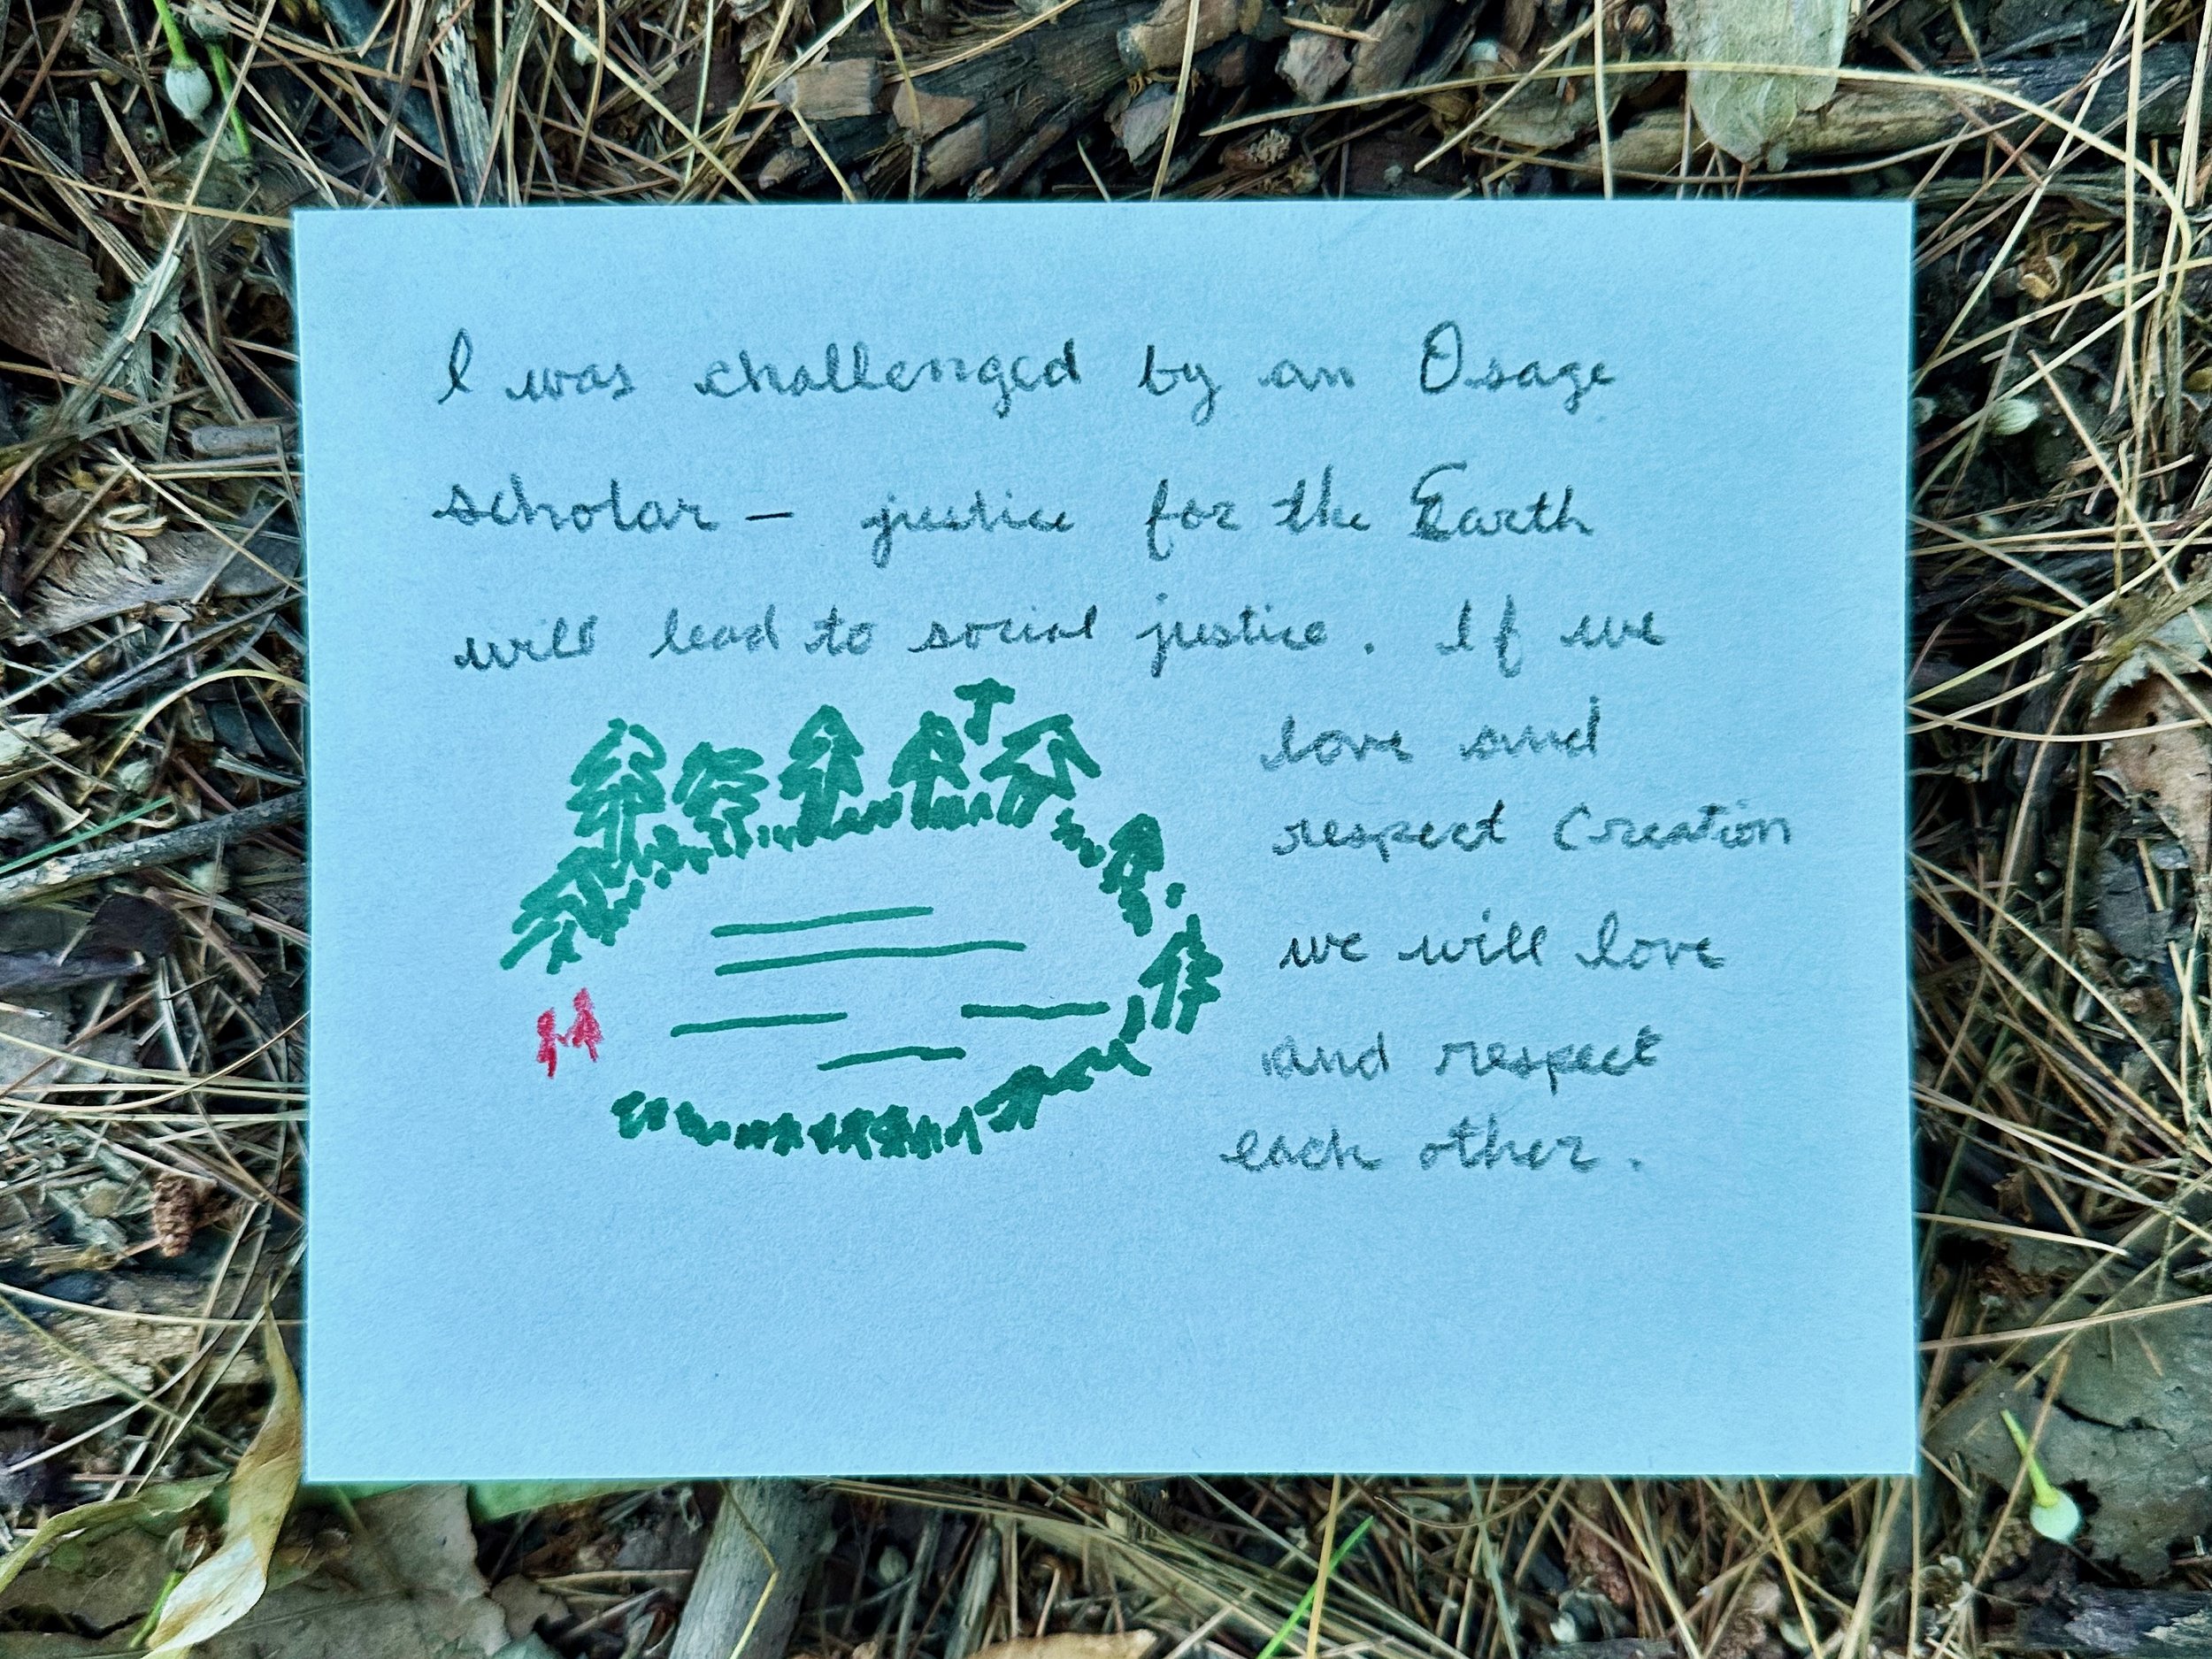 I was challenged by an Osage
scholar — justice for the Earth
will lead to social justice. If we
love and
respect Creation
we will love
and respect
each other.